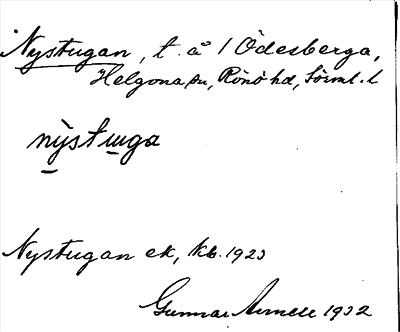 Nystugan, t. å 1 Ödesberga,
Helgona sn, Rönö hd, Sörml. l
nỳstuga
Nystugan ek, Kb. 1923
Gunnar Arnell 1932